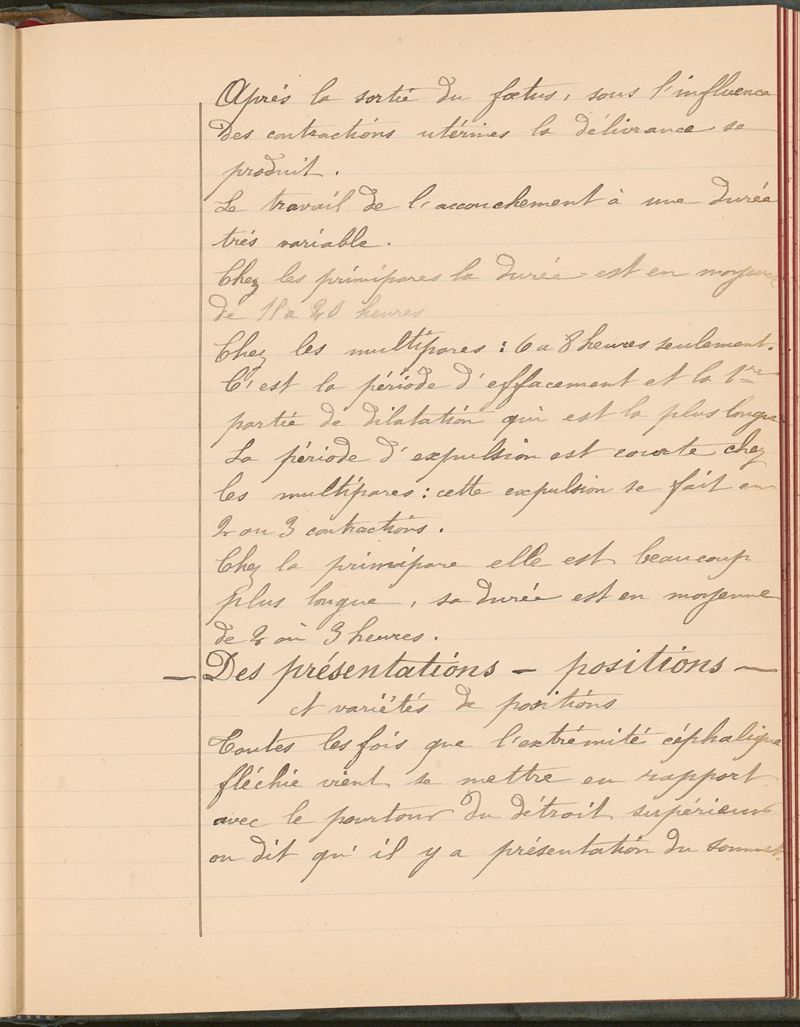 Après la sortie du fœtus, sous l'influence
des contractions utérines la délivrance se
produit.
Le travail de l'accouchement à une durée
très variable.
Chez les primipares la durée est en moyenne
de 18 a 20 heures
Chez les multipares : 6 a 8 heures seulement.
C'est la période d'effacement et la 1re
partie de dilatation qui est la plus longue
La période d'expulsion est courte chez
les multipares : cette expulsion se fait en
2 ou 3 contractions.
Chez la primipare elle est beaucoup
plus longue, sa durée est en moyenne
de 2 ou 3 heures.
— Des présentations — positions —
et variétés de positions
Toutes les fois que l'extrémité céphalique
fléchie vient se mettre en rapport
avec le pourtour du détroit supérieur
on dit qu'il y a présentation du sommet.